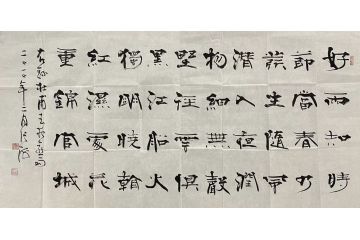 好雨知時
節當春乃
發生隨風
潛入夜潤
物細無聲
野徑雲俱
黑江船火
獨明曉看
紅濕處花
重錦官城
右錄杜甫
年十二月